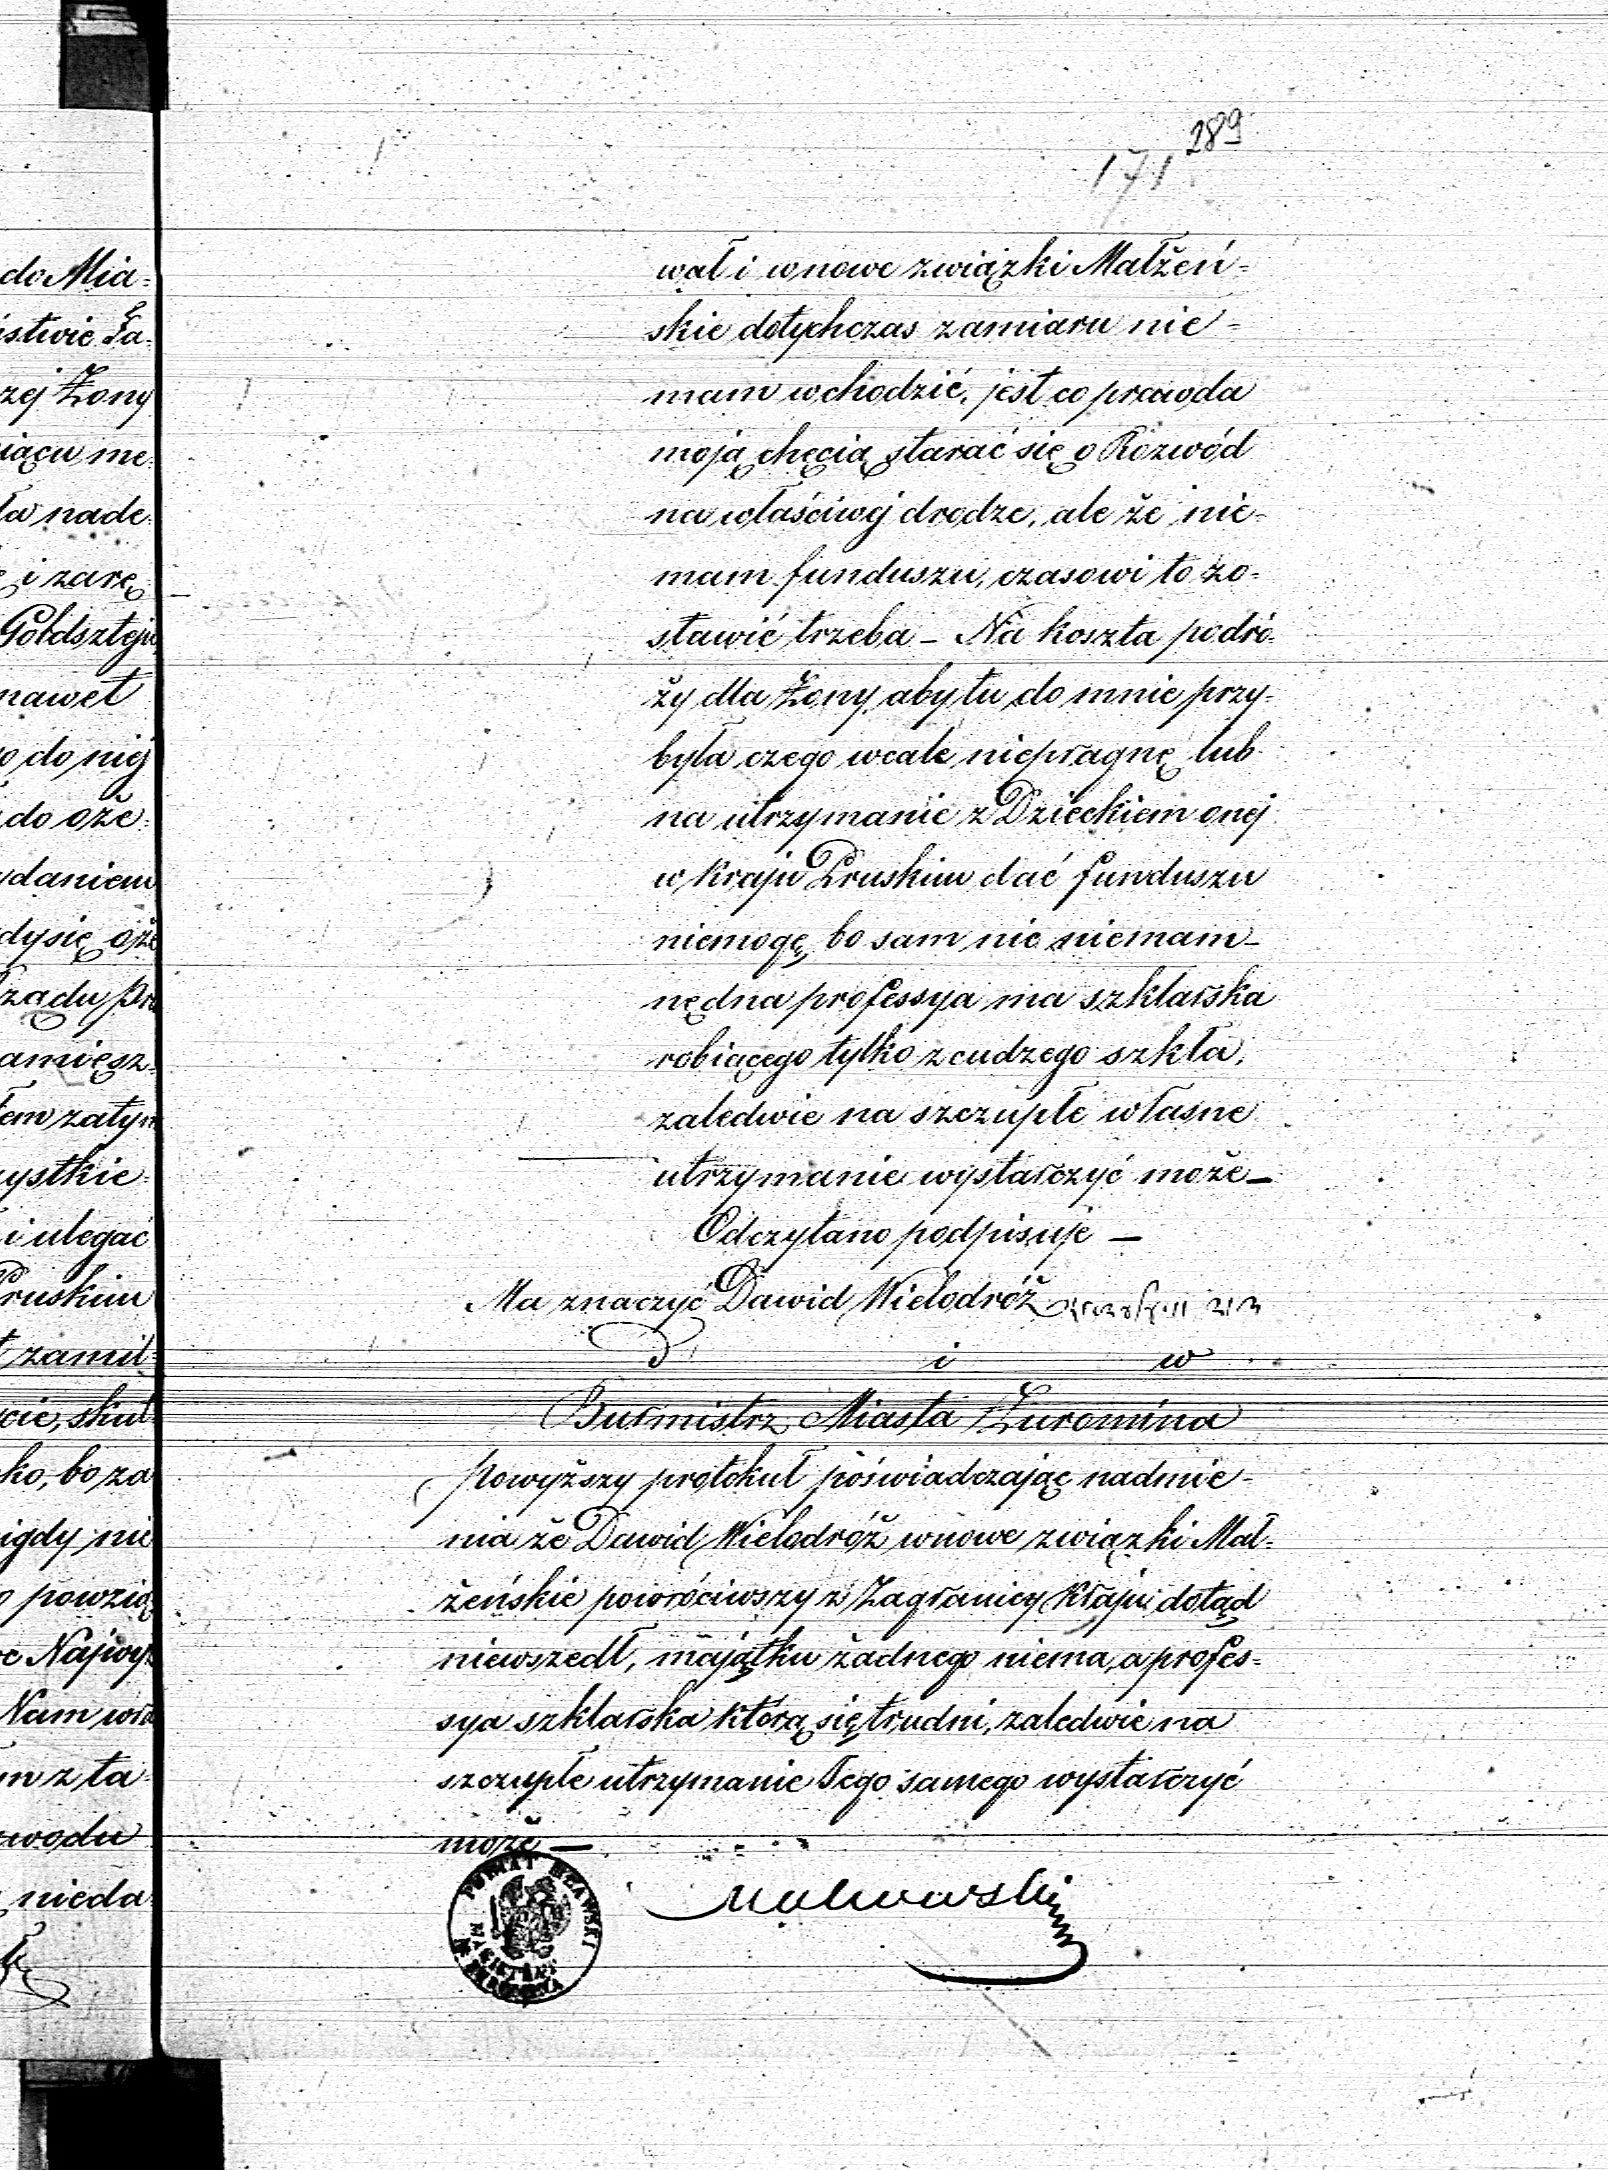 289
171
wał i w nowe związki Małżeń=
skie dotychczas zamiaru nie=
mam wchodzić, jest co prawda
moją chęcią starać się o Rozwód
na właściwej drodze, ale że nie=
mam funduszu, czasowi to zo=
stawić trzeba – Na koszta podró=
ży dla Żony aby tu do mnie przy=
była czego wcale niepragnę lub
na utrzymanie z Dzieckiem onej
w kraju Pruskim dać funduszu
niemogę, bo sam nic niemam –
nędna professya ma szklarska
robiącego tylko z cudzego szkła,
zaledwie na szczupłe własne
utrzymanie wystarczyć może –
Odczytano podpisuje –
Ma znaczyć Dawid Wielodróż
D i w
Burmistrz Miasta Żuromina
powyższy protokuł poświadczając nadmie=
nia że Dawid Wielodróż w nowe związki Mał=
żeńskie powróciwszy z Zagranicy Kraju dotąd
niewszedł, majątku żadnego niema, a profes=
sya szklarska którą się trudni, zaledwie na
szczupłe utrzymanie Tego samego wystarczyć
może –
POWIAT MŁAWSKI
MAGISTRAT
do Mia=
istwie Za=
zej Żony
iącu me=
ła nade=
i zarę
Goldsztejn
nawet
o do niej
do oże=
daniem
dy się oże
amiesz=
tem zatym
ystkie=
i ulegać
Pruskim
zamil=
cie, skut=
ko, bo za
igdy nie
powzią
Najwy
Nam
m z ta=
zwodu
nieda